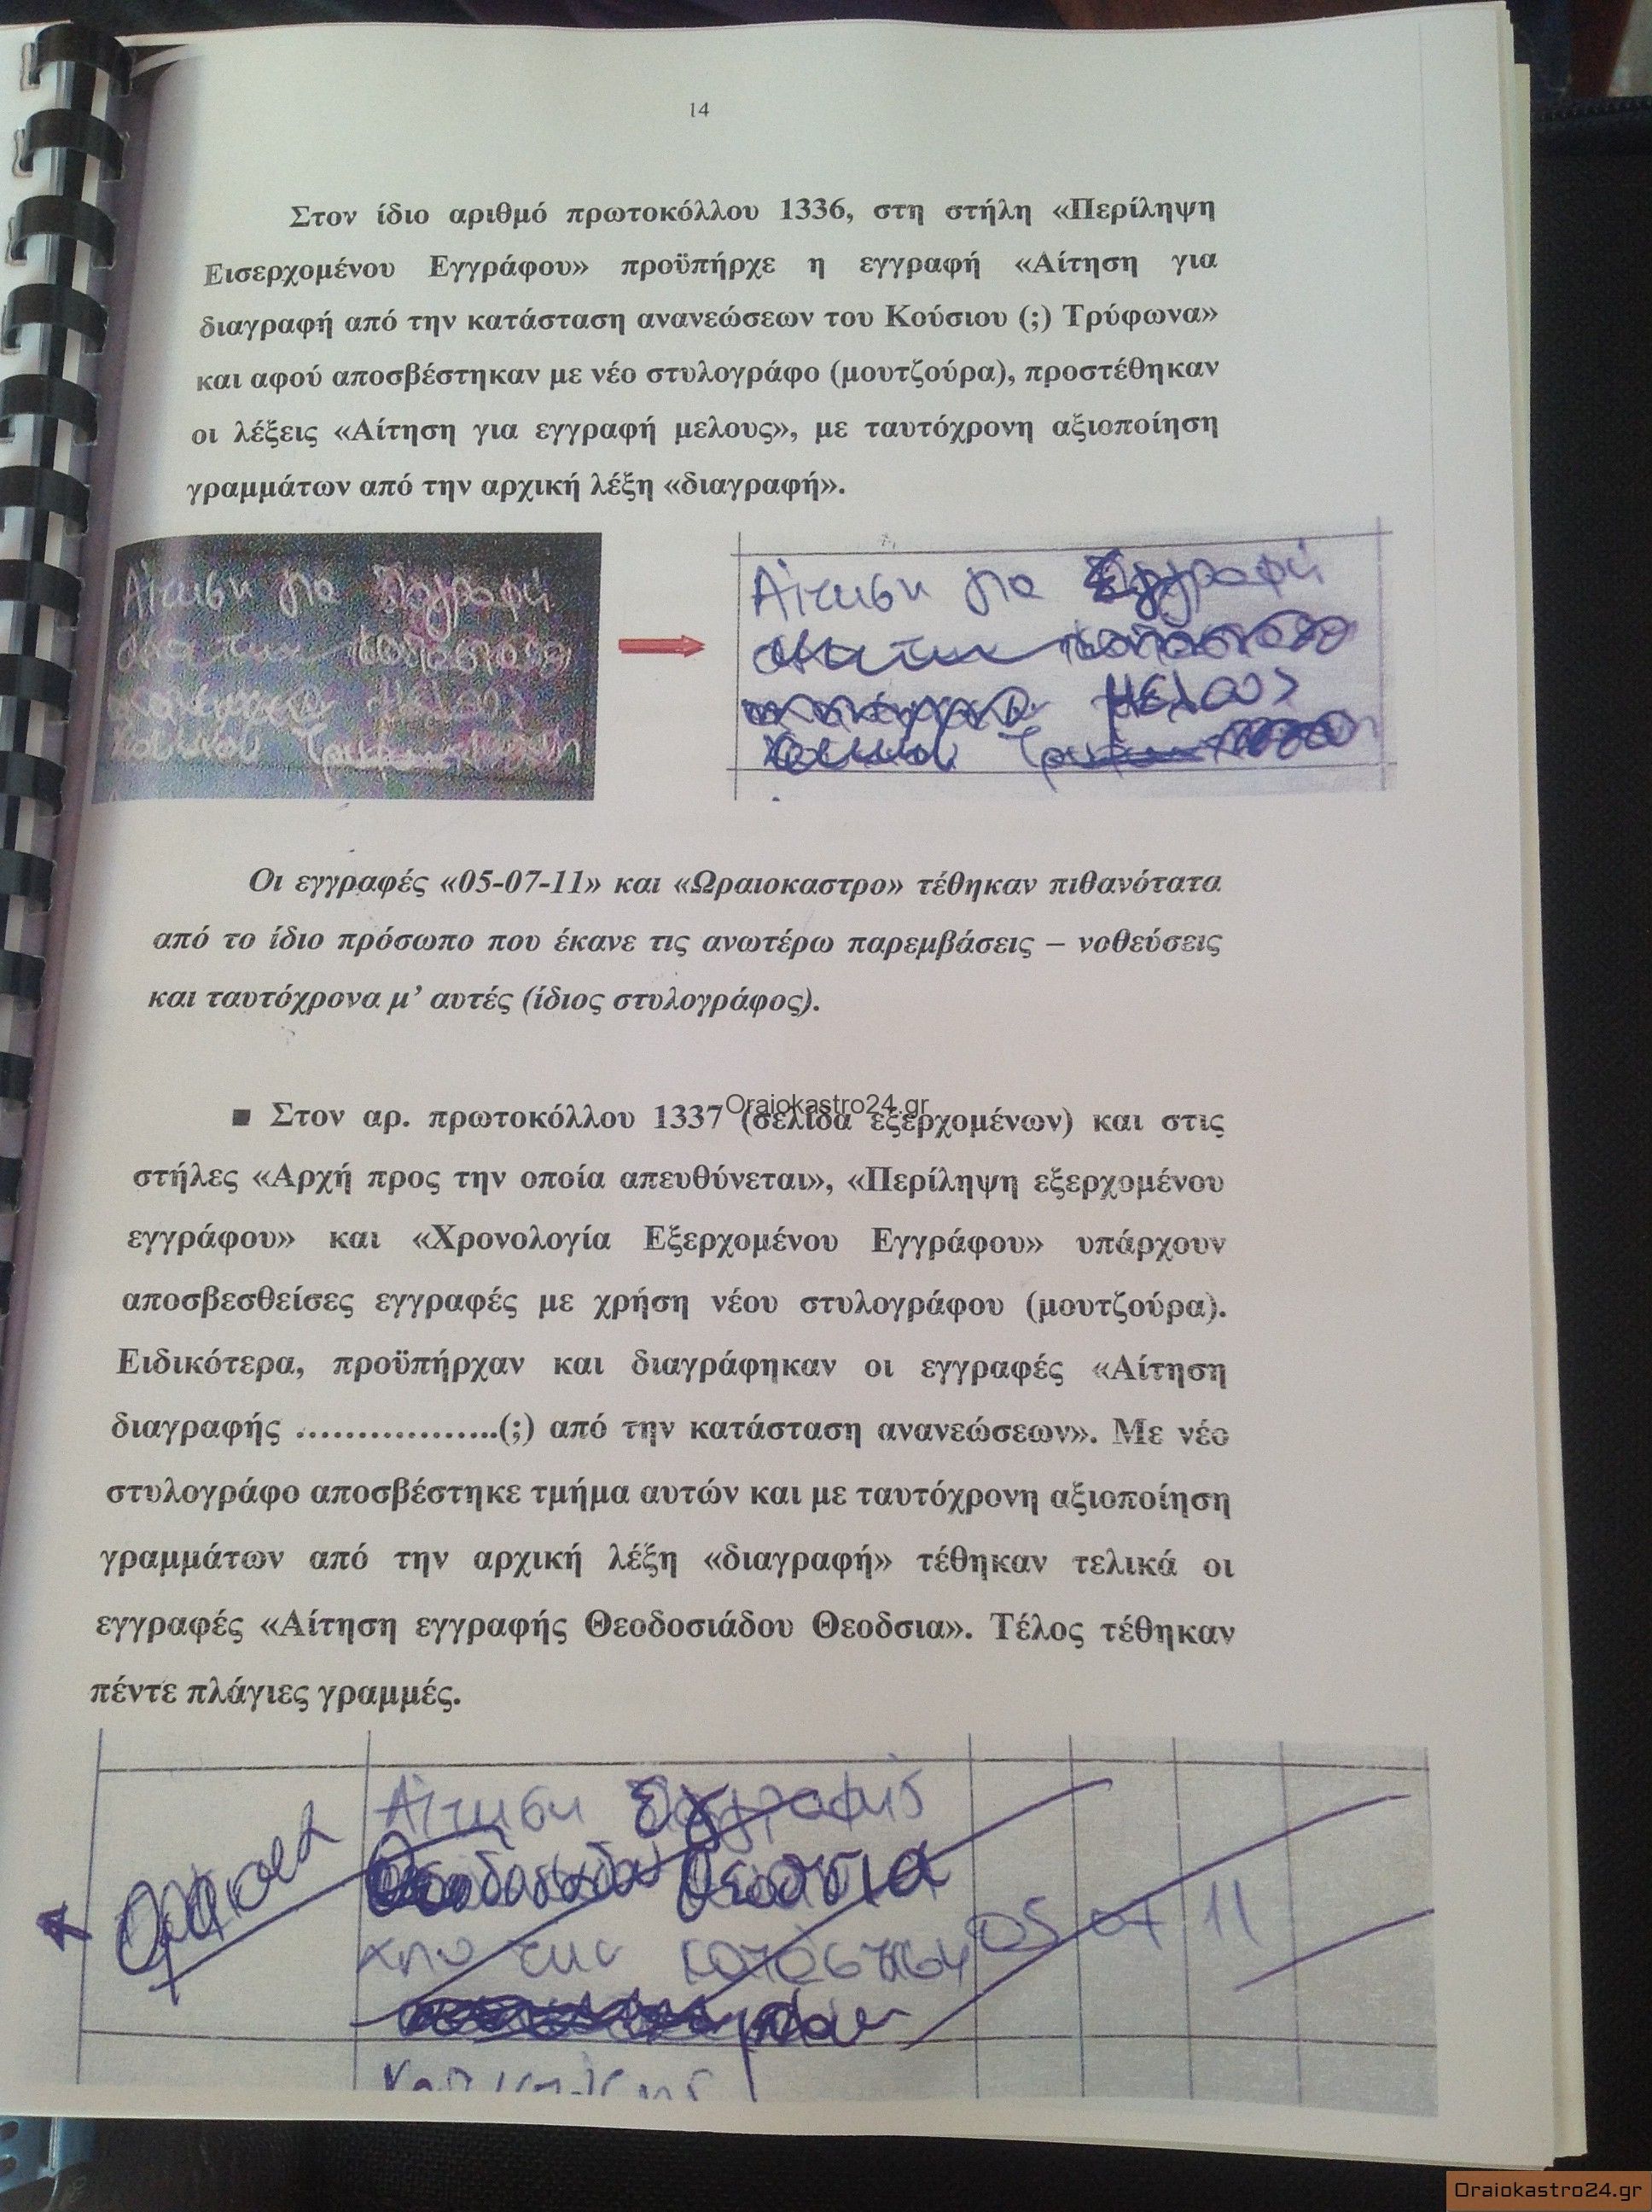 14
Στον ίδιο αριθμό πρωτοκόλλου 1336, στη στήλη «Περίληψη
Εισερχομένου Εγγράφου» προϋπήρχε η εγγραφή «Αίτηση για
διαγραφή από την κατάσταση ανανεώσεων του Κούσιου (;) Τρύφωνα»
και αφού αποσβέστηκαν με νέο στυλογράφο (μουτζούρα), προστέθηκαν
οι λέξεις «Αίτηση για εγγραφή μελους», με ταυτόχρονη αξιοποίηση
γραμμάτων από την αρχική λέξη «διαγραφή».
Αίτηση για εγγραφή
Μέλους
Αίτηση για εγγραφή
Μέλους
Οι εγγραφές «05-07-11» και «Ωραιοκαστρο» τέθηκαν πιθανότατα
από το ίδιο πρόσωπο που έκανε τις ανωτέρω παρεμβάσεις – νοθεύσεις
και ταυτόχρονα μ' αυτές (ίδιος στυλογράφος).
Oraiokastro24.gr
■ Στον αρ. πρωτοκόλλου 1337 (σελίδα εξερχομένων) και στις
στήλες «Αρχή προς την οποία απευθύνεται», «Περίληψη εξερχομένου
εγγράφου» και «Χρονολογία Εξερχομένου Εγγράφου» υπάρχουν
αποσβεσθείσες εγγραφές με χρήση νέου στυλογράφου (μουτζούρα).
Ειδικότερα, προϋπήρχαν και διαγράφηκαν οι εγγραφές «Αίτηση
διαγραφής ………………..(;) από την κατάσταση ανανεώσεων». Με νέο
στυλογράφο αποσβέστηκε τμήμα αυτών και με ταυτόχρονη αξιοποίηση
γραμμάτων από την αρχική λέξη «διαγραφή» τέθηκαν τελικά οι
εγγραφές «Αίτηση εγγραφής Θεοδοσιάδου Θεοδσια». Τέλος τέθηκαν
πέντε πλάγιες γραμμές.
Αίτηση εγγραφής
Θεοδοσιάδου Θεοδσια
από την κατάσταση 05 07 11
Oraiokastro24.gr